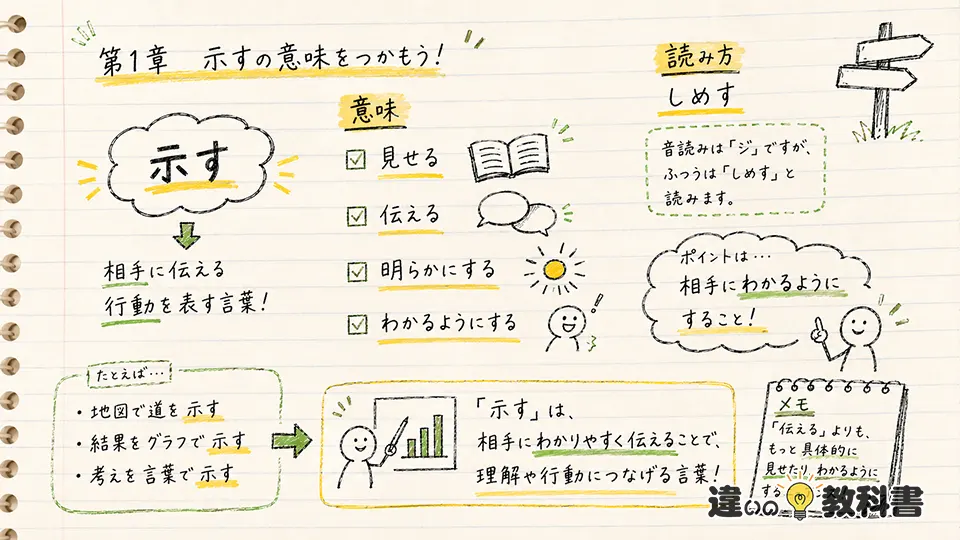 第1章 示すの意味をつかもう!
示す
相手に伝える
行動を表す言葉!
意味
見せる
伝える
明らかにする
わかるようにする
読み方
しめす
音読みは「ジ」ですが、
ふつうは「しめす」と
読みます。
ポイントは…
相手にわかるように
すること!
たとえば…
・地図で道を示す
・結果をグラフで示す
・考えを言葉で示す
「示す」は、
相手にわかりやすく伝えることで、
理解や行動につなげる言葉!
メモ
「伝える」よりも、
もっと具体的に
見せたり、わかるように
する
違いの教科書